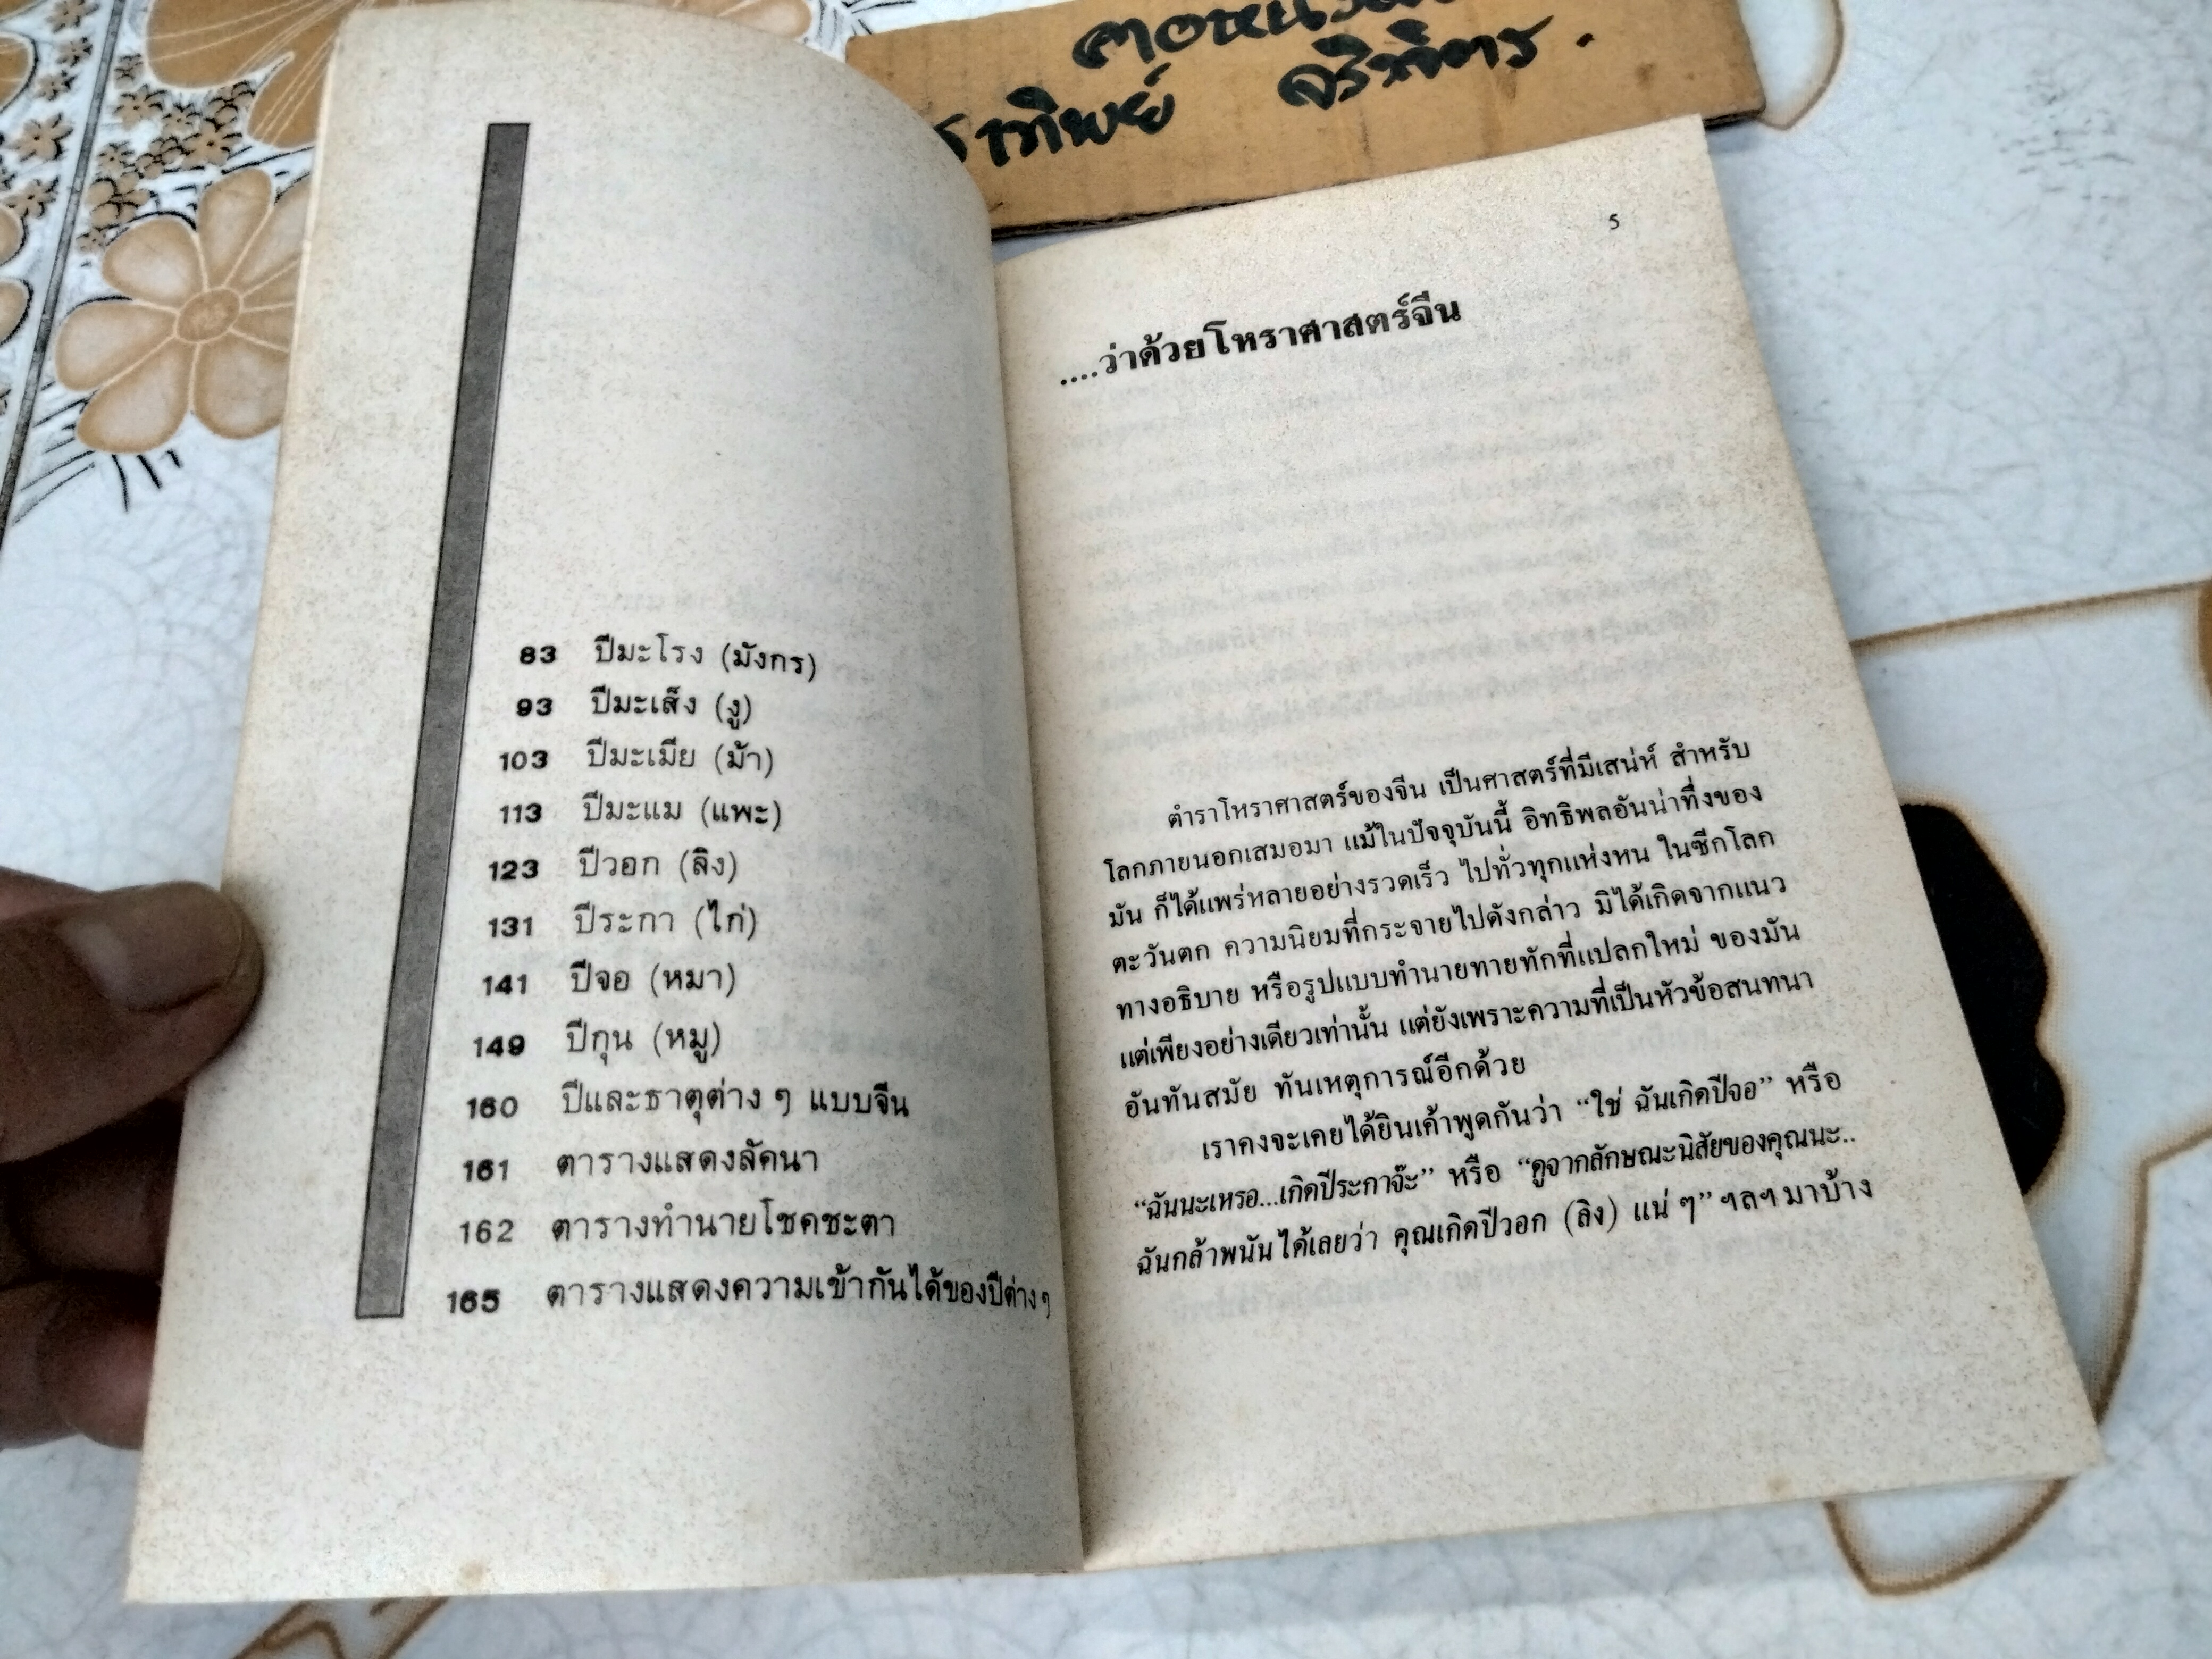 จริพิตร.
83 ปีมะโรง (มังกร)
93 ปีมะเส็ง (งู)
103 ปีมะเมีย (ม้า)
113 ปีมะแม (แพะ)
123 ปีวอก (ลิง)
131 ปีระกา (ไก่)
141 ปีจอ (หมา)
149 ปีกุน (หมู)
160 ปีและธาตุต่าง ๆ แบบจีน
161 ตารางแสดงลัคนา
162 ตารางทำนายโชคชะตา
165 ตารางแสดงความเข้ากันได้ของปีต่าง ๆ
5
....ว่าด้วยโหราศาสตร์จีน
ตำราโหราศาสตร์ของจีน เป็นศาสตร์ที่มีเสน่ห์ สำหรับ
โลกภายนอกเสมอมา แม้ในปัจจุบันนี้ อิทธิพลอันน่าทึ่งของ
มัน ก็ได้แพร่หลายอย่างรวดเร็ว ไปทั่วทุกแห่งหน ในซีกโลก
ตะวันตก ความนิยมที่กระจายไปดังกล่าว มิได้เกิดจากแนว
ทางอธิบาย หรือรูปแบบทำนายทายทักที่แปลกใหม่ ของมัน
แต่เพียงอย่างเดียวเท่านั้น แต่ยังเพราะความที่เป็นหัวข้อสนทนา
อันทันสมัย ทันเหตุการณ์อีกด้วย
เราคงจะเคยได้ยินเค้าพูดกันว่า “ใช่ ฉันเกิดปีจอ” หรือ
“ฉันนะเหรอ...เกิดปีระกาจ๊ะ” หรือ “ดูจากลักษณะนิสัยของคุณนะ..
ฉันกล้าพนันได้เลยว่า คุณเกิดปีวอก (ลิง) แน่ ๆ” ฯลฯ มาบ้าง